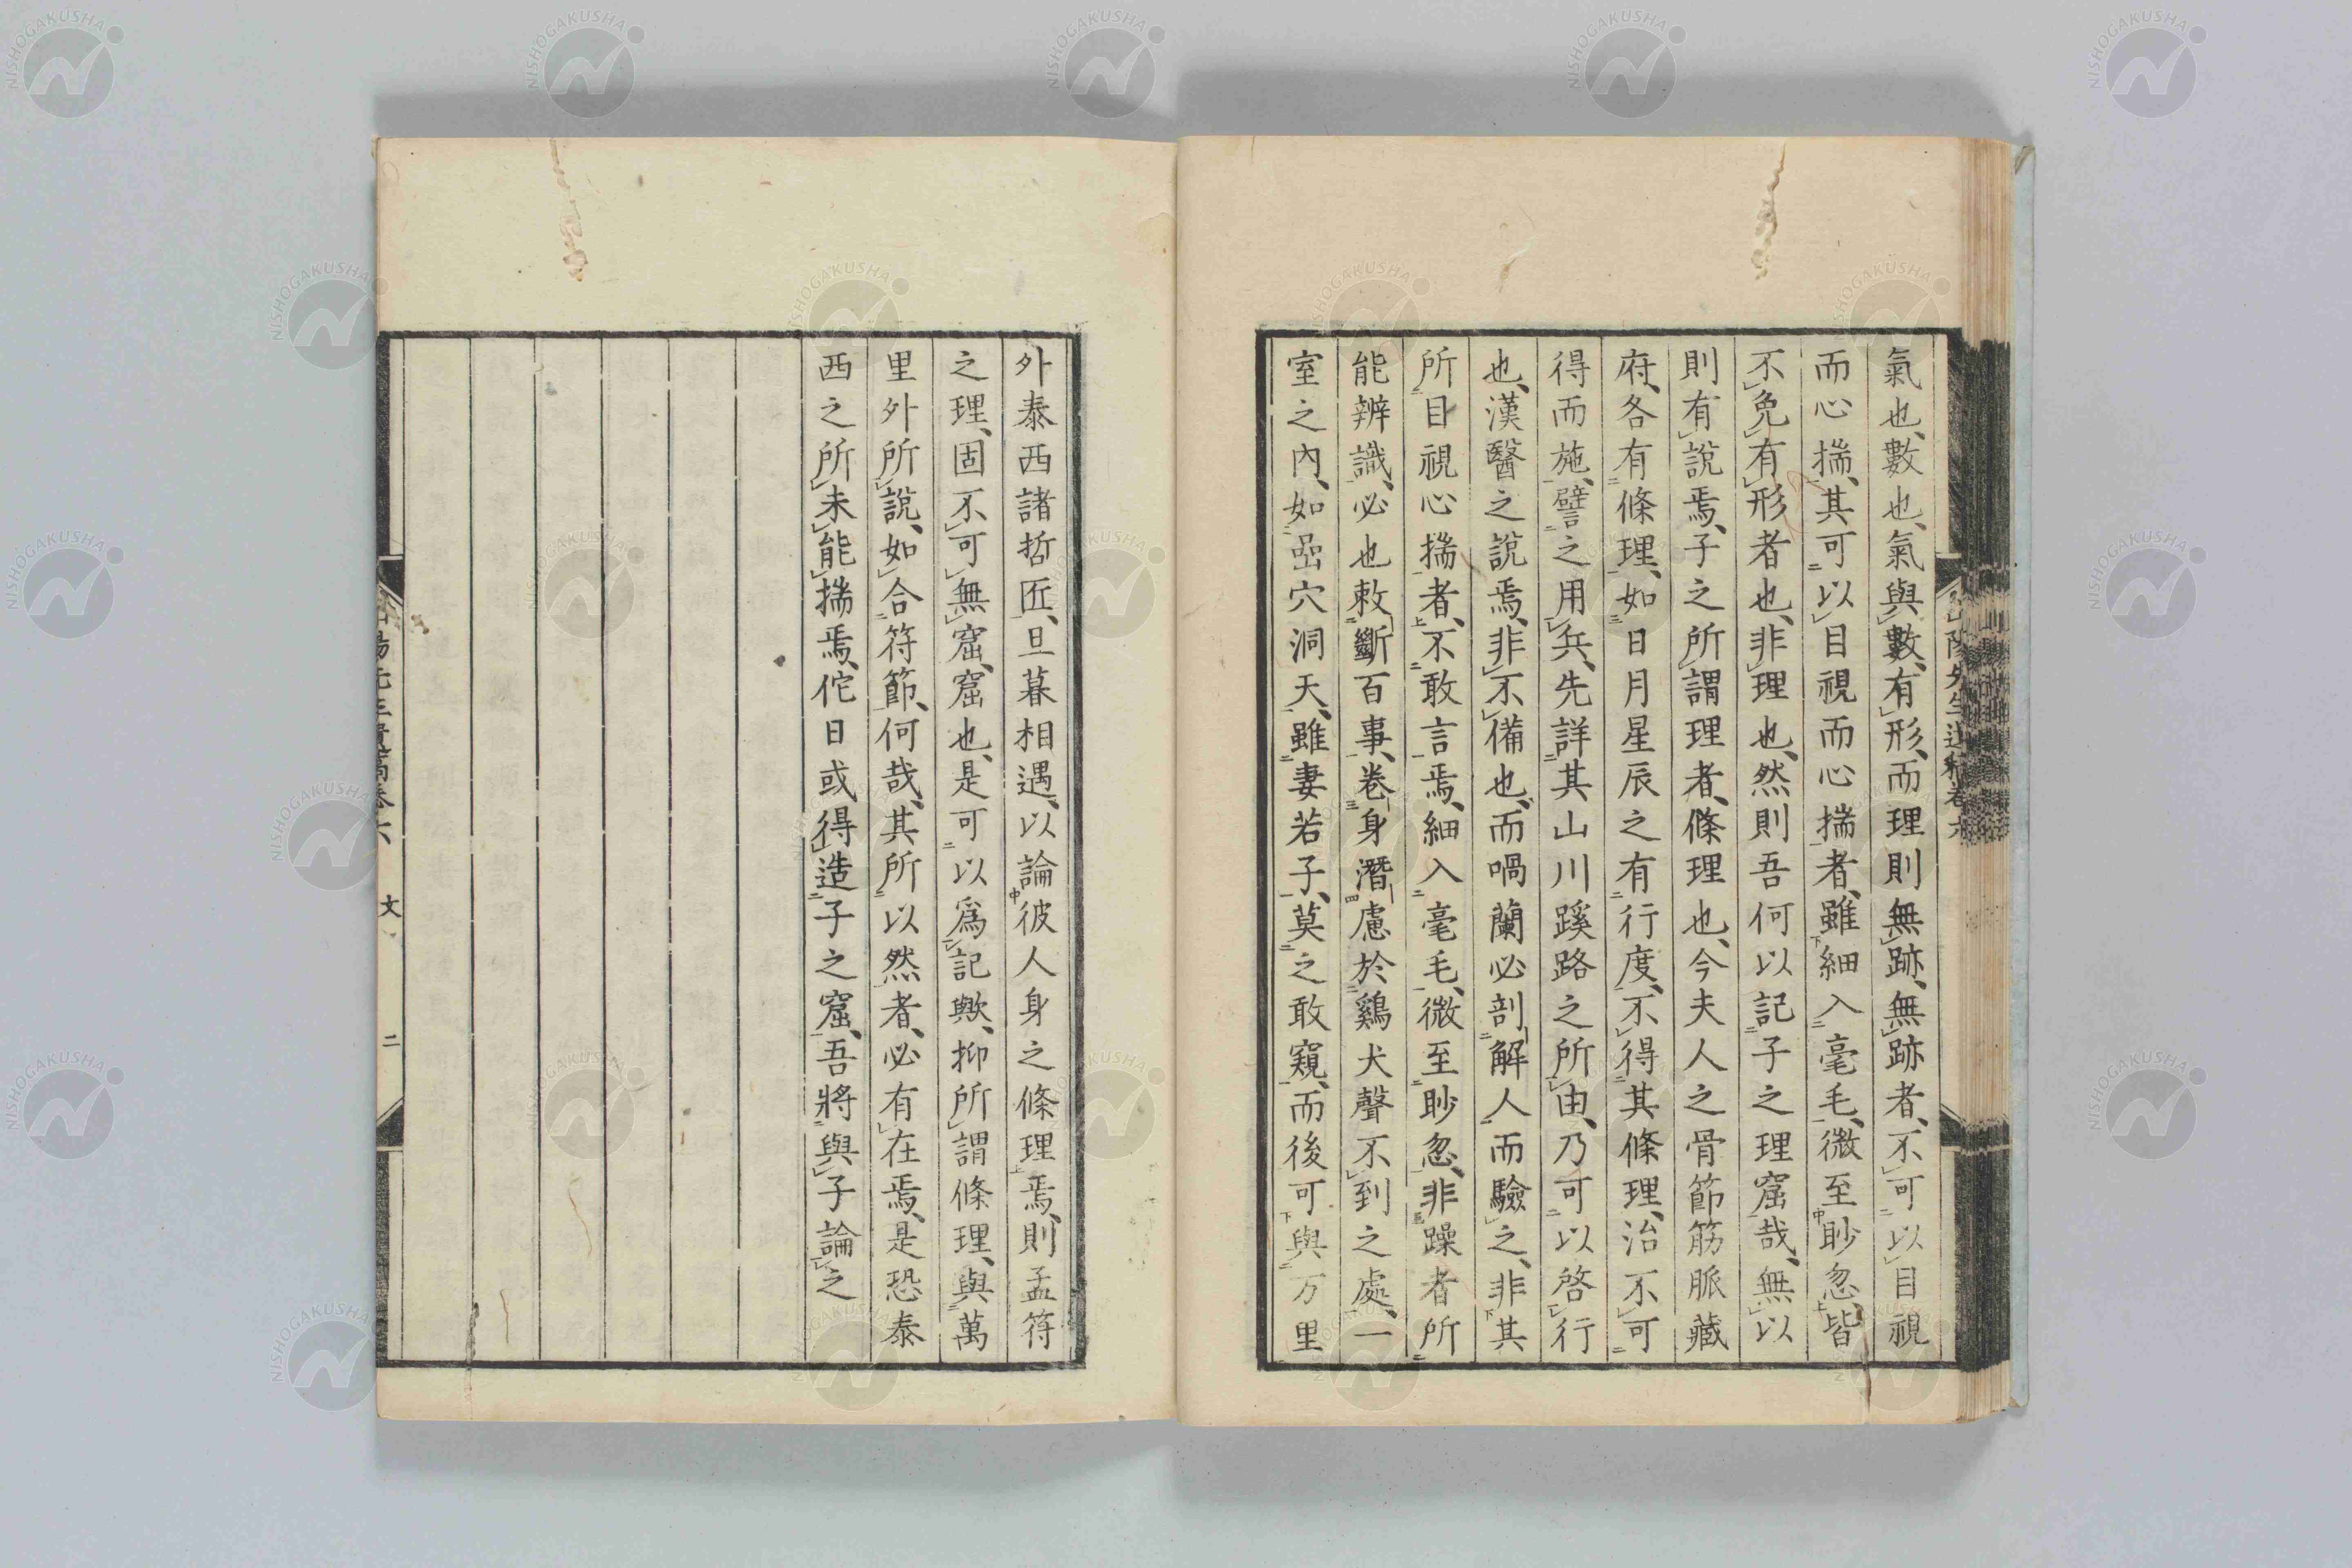 氣也、數也、氣與數、有形、而理則無跡、無跡者、不可以目視
而心揣、其可以目視而心揣者、雖細入毫毛、微至眇忽、皆
不免有形者也、非理也、然則吾何以記子之理窟哉、無以
則有說焉、子之所謂理者、條理也、今夫人之骨節筋脈藏
府、各有條理、如日月星辰之有行度、不得其條理、治不可
得而施、譬之用兵、先詳其山川蹊路之所由、乃可以啓行
也、漢醫之說焉、非不備也、而喎蘭必剖解人而驗之、非其
所目視心揣者、不敢言焉、細入毫毛、微至眇忽、非躁者所
能辨識、必也敕斷百事、卷身潛慮於鷄犬聲不到之處、一
室之內、如嵒穴洞天、雖妻若子、莫之敢窺、而後可與万里
外泰西諸哲匠、旦暮相遇、以論彼人身之條理焉、則孟符
之理、固不可無窟、窟也、是可以爲記歟、抑所謂條理、與萬
里外所說、如合符節、何哉、其所以然者、必有在焉、是恐泰
西之所未能揣焉、佗日或得造子之窟、吾將與子論之
山陽先生遺稿卷六 文 二
NISHOGAKUSHA